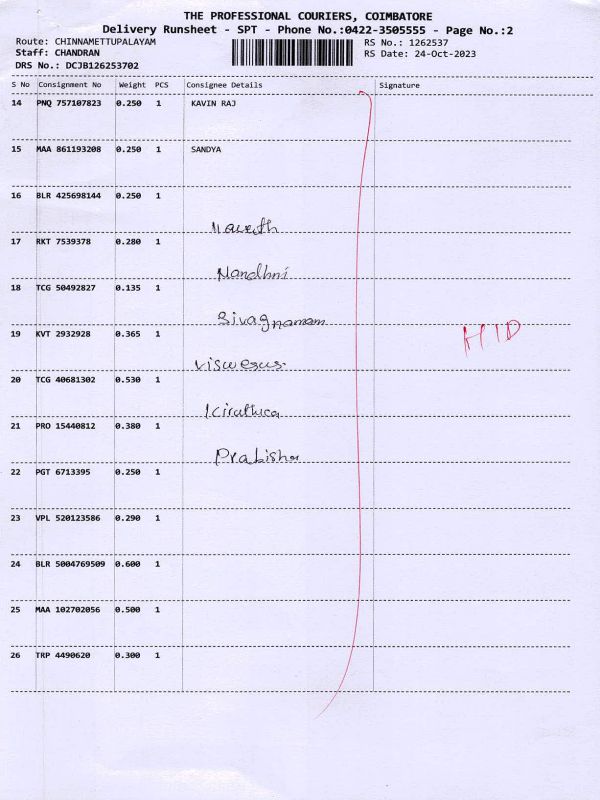 THE PROFESSIONAL COURIERS, COIMBATORE
Delivery Runsheet - SPT - Phone No.:0422-3505555 - Page No.:2
Route: CHINNAMETTUPALAYAM RS No.: 1262537
Staff: CHANDRAN RS Date: 24-Oct-2023
DRS No.: DCJB126253702
S No Consignment No Weight PCS Consignee Details Signature
14 PNQ 757107823 0.250 1 KAVIN RAJ
15 MAA 861193208 0.250 1 SANDYA
16 BLR 425698144 0.250 1
17 RKT 7539378 0.280 1
Nandhni
18 TCG 50492827 0.135 1
Sivagnamam
19 KVT 2932928 0.365 1
20 TCG 40681302 0.530 1
21 PRO 15440812 0.380 1
Prabisha
22 PGT 6713395 0.250 1
23 VPL 520123586 0.290 1
24 BLR 5004769509 0.600 1
25 MAA 102702056 0.500 1
26 TRP 4490620 0.300 1